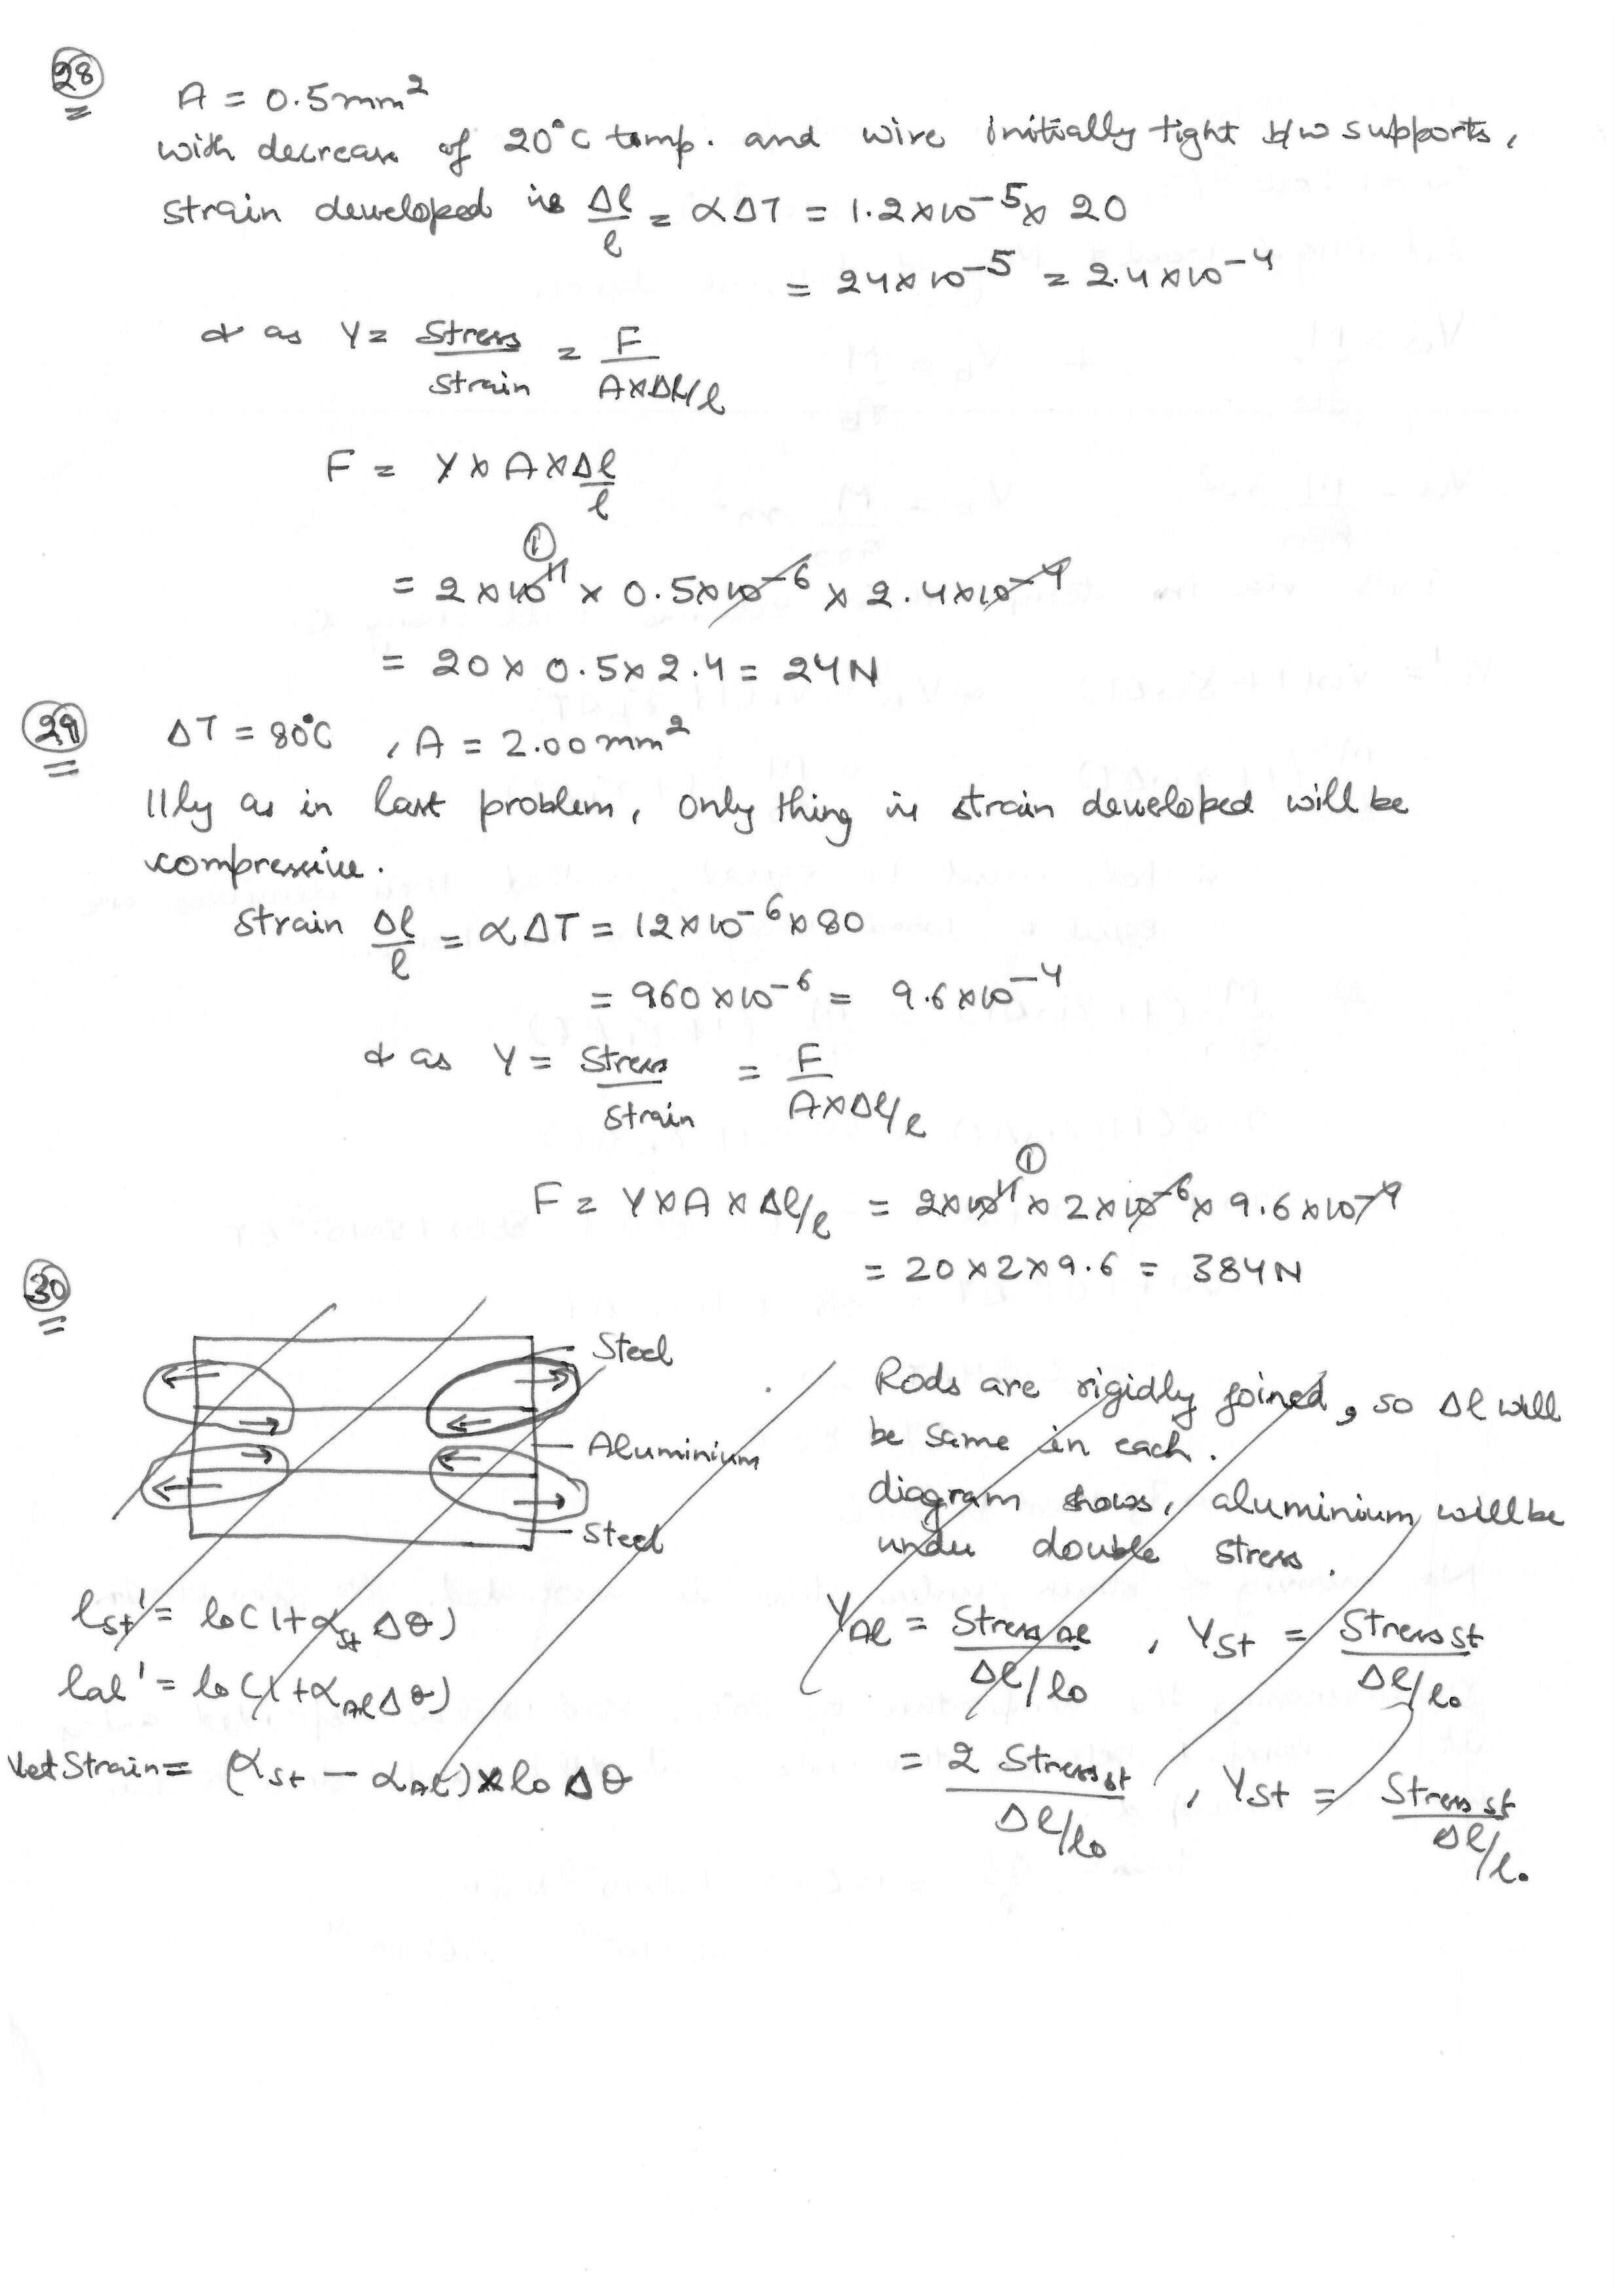 28
A = 0.5mm²
with decrease of 20°C temp. and wire initially tight b/w supports,
strain developed is Δl/l = αΔT = 1.2×10⁻⁵ × 20
= 24×10⁻⁵ = 2.4×10⁻⁴
& as Y = Stress/Strain = F/(A×Δl/l)
F = Y × A × Δl/l
①
= 2×10¹¹ × 0.5×10⁻⁶ × 2.4×10⁻⁴
= 20 × 0.5 × 2.4 = 24N
29
ΔT = 80°C , A = 2.00mm²
||ly as in last problem, only thing is strain developed will be
compressive.
Strain Δl/l = αΔT = 12×10⁻⁶×80
= 960×10⁻⁶ = 9.6×10⁻⁴
& as Y = Stress/Strain = F/(A×Δl/l)
①
F = Y×A×Δl/l = 2×10¹¹ × 2×10⁻⁶ × 9.6×10⁻⁴
= 20×2×9.6 = 384N
30
Steel
Aluminium
Steel
Rods are rigidly joined, so Δl will
be same in each.
diagram shows, aluminium will be
under double stress.
lst' = l₀(1+αst Δθ)
lal' = l₀(1+αAl Δθ)
Net Strain = (αSt − αAl)×l₀ Δθ
YAl = Stress Al/(Δl/l₀) , YSt = Stress St/(Δl/l₀)
= 2 Stress st/(Δl/l₀) , YSt = Stress st/(Δl/l₀)